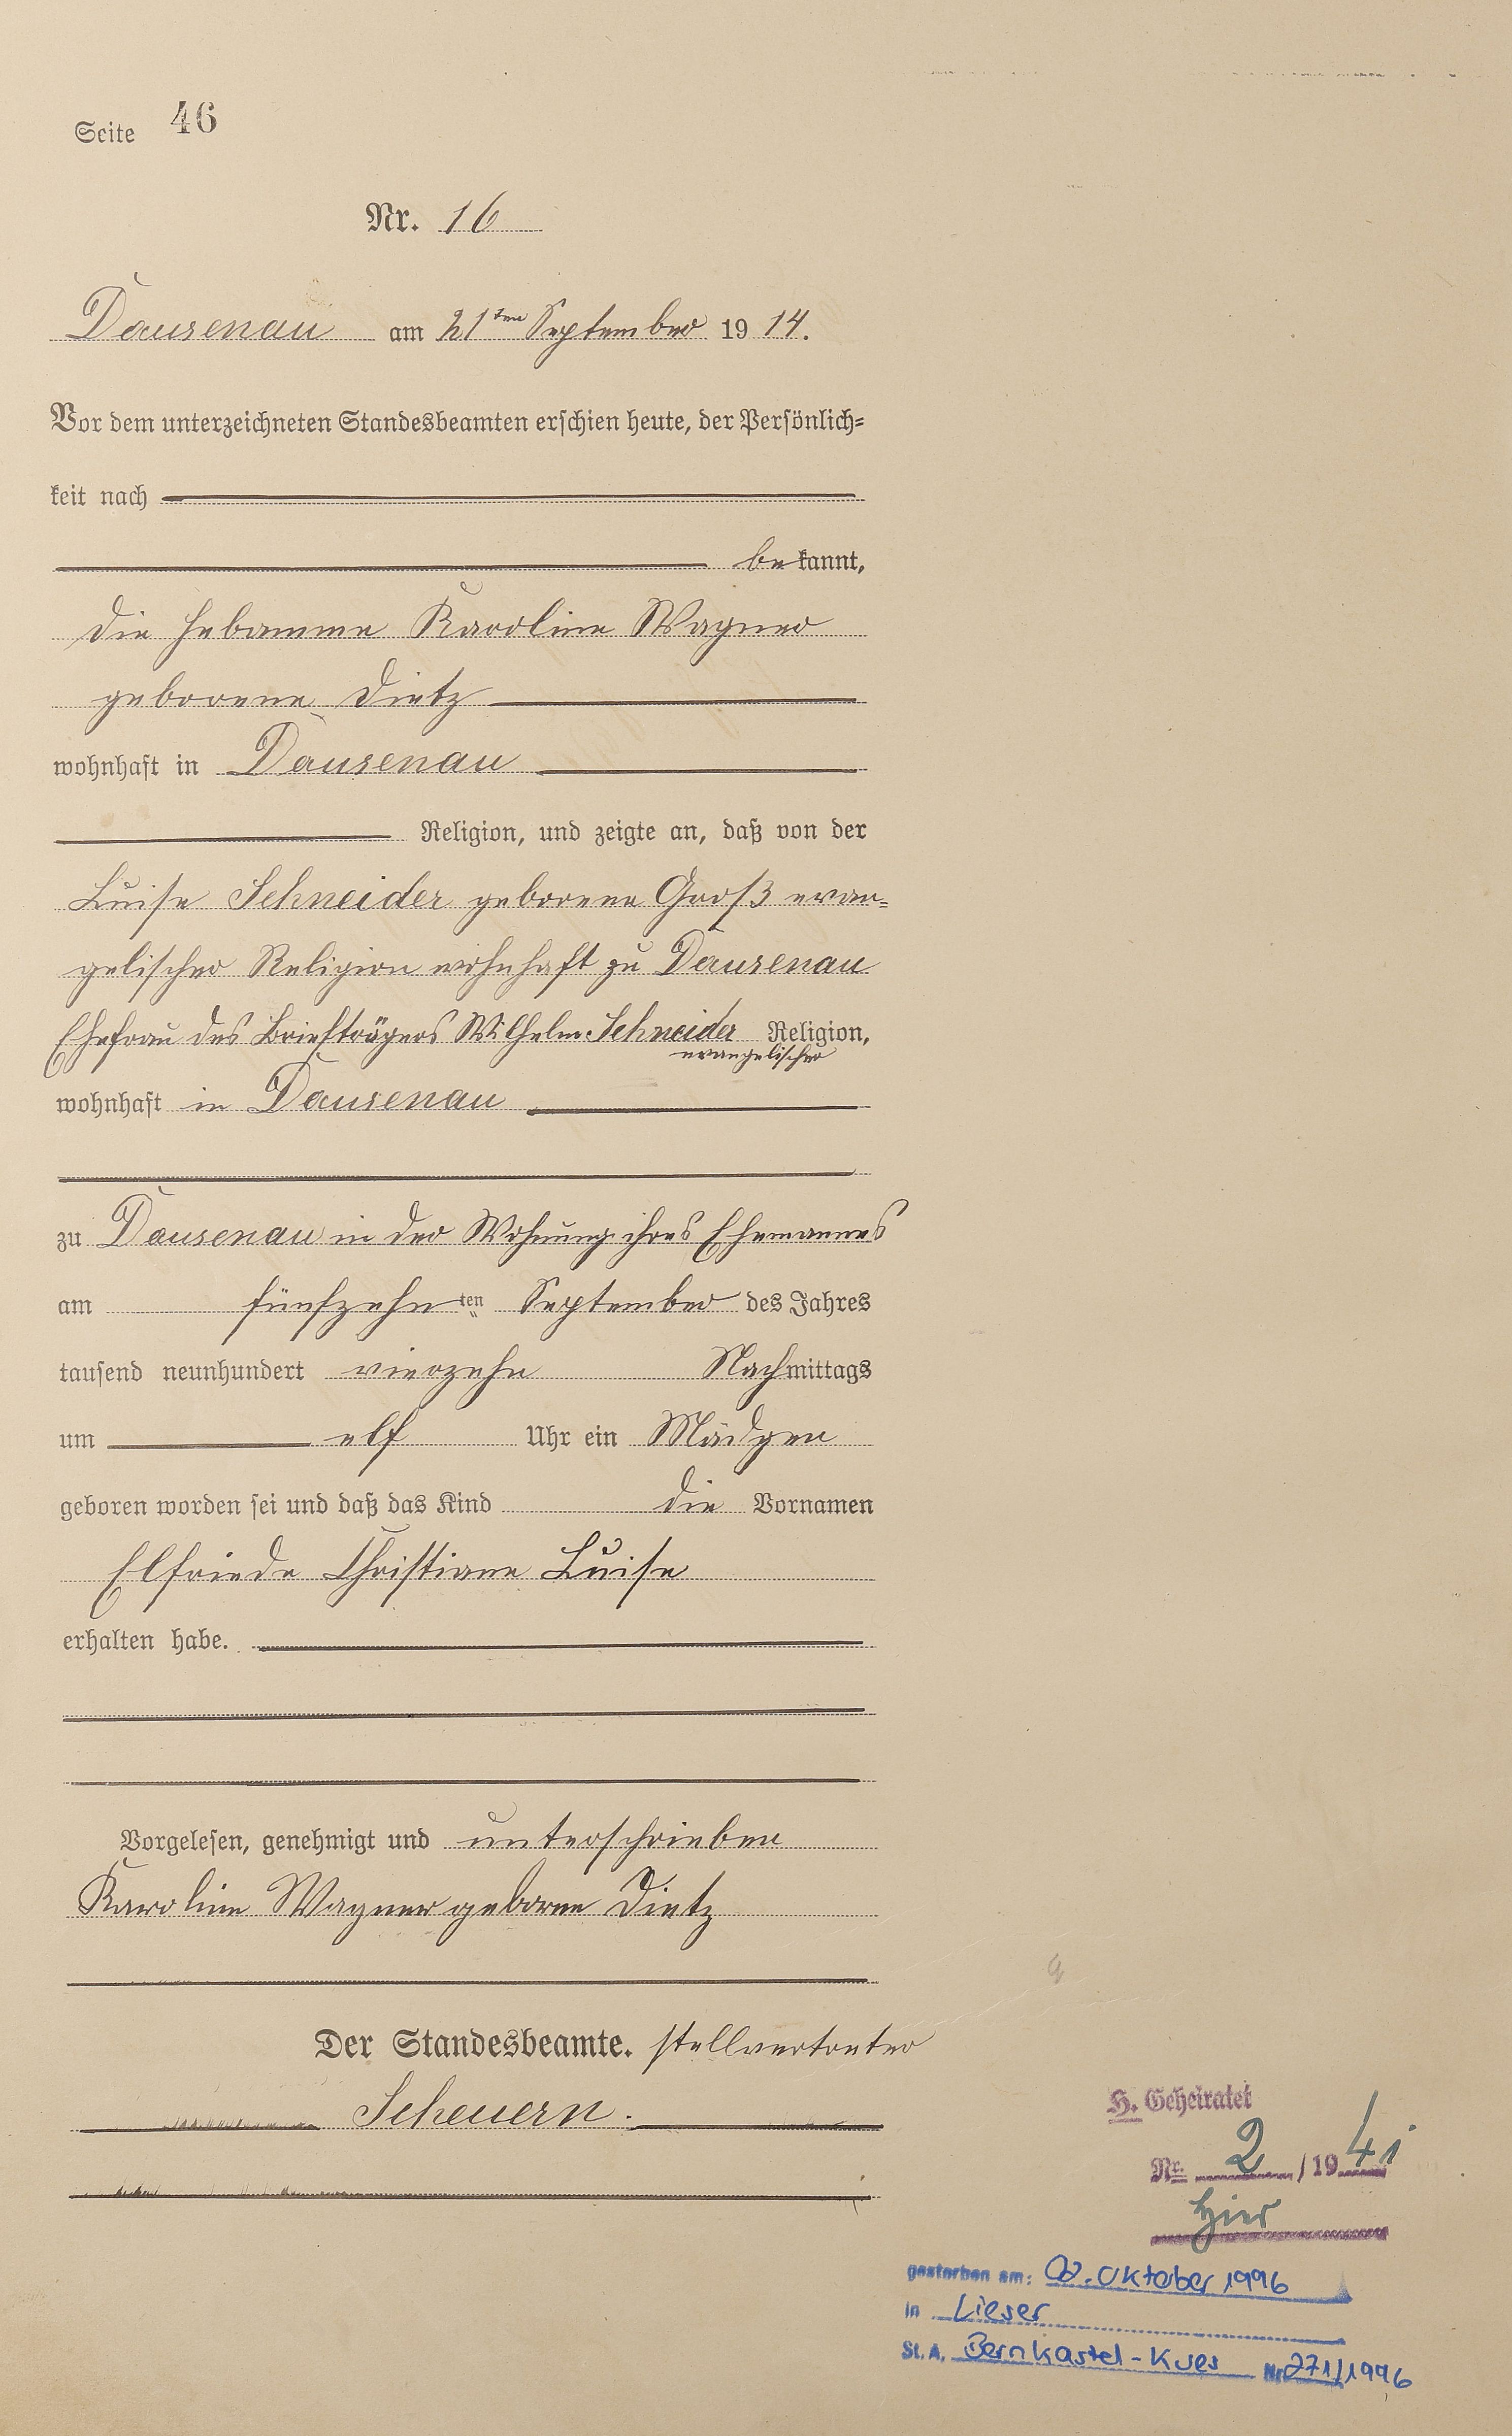 Seite 46
Nr. 16
Dausenau am 21ten September 1914.
Vor dem unterzeichneten Standesbeamten erschien heute, der Persönlich=
keit nach
bekannt,
die Hebamme Karoline Wagner
geborene Dietz
wohnhaft in Dausenau
Religion, und zeigte an, daß von der
Luise Schneider geborene Groß evan=
gelischer Religion wohnhaft zu Dausenau
Ehefrau des Briefträgers Wilhelm Schneider Religion,
evangelischer
wohnhaft in Dausenau
zu Dausenau in der Wohnung ihres Ehemannes
am fünfzehnten September des Jahres
tausend neunhundert vierzehn Nachmittags
um elf Uhr ein Mädgen
geboren worden sei und daß das Kind die Vornamen
Elfriede Christiane Luise
erhalten habe.
Vorgelesen, genehmigt und unterschrieben
Karoline Wagner geborne Dietz
Der Standesbeamte. stellvertreter
Scheuern.
H. Geheiratet
Nr. 2 /1941
hier
gestorben am: Oktober 1996
in Lieser
St. A. Bernkastel-Kues Nr 271/1996